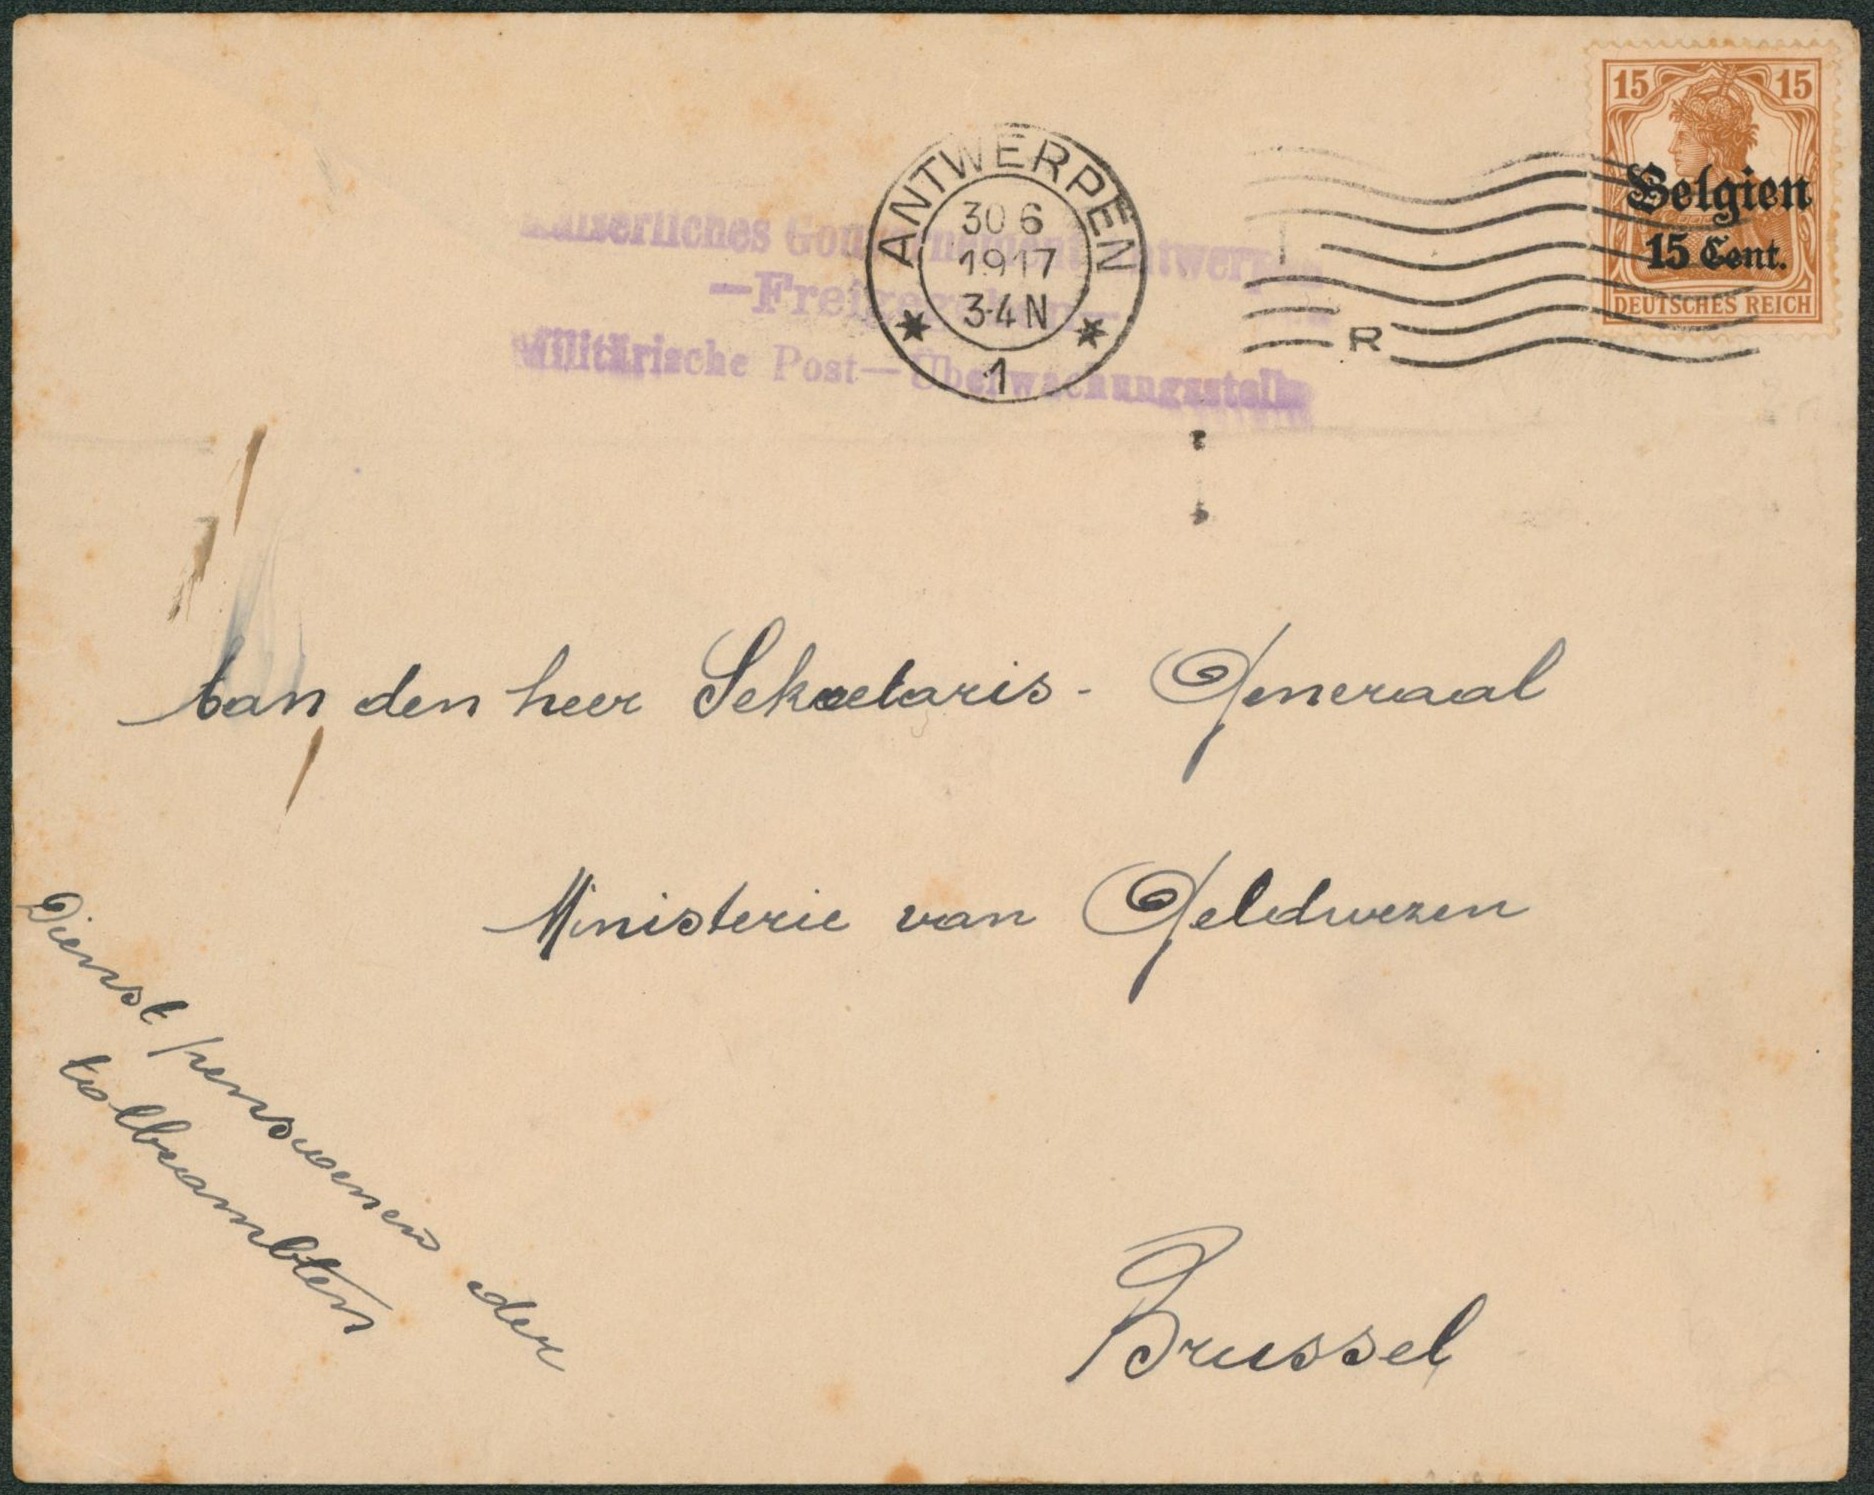 15 15
Belgien
15 Cent.
DEUTSCHES REICH
ANTWERPEN
30 6
1917
3-4 N
* *
1
R
Kaiserliches Gouvernement Antwerpen
—Freigegeben—
Militärische Post—Überwachungsstelle
Aan den heer Sekretaris - Generaal
Ministerie van Geldwezen
Brussel
Dienst pensioenen der
tolbeambten